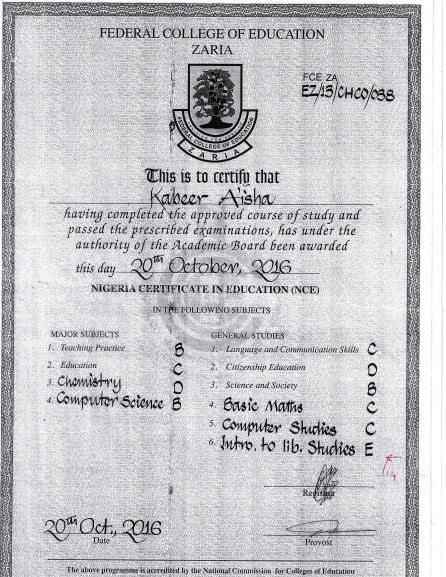 FEDERAL COLLEGE OF EDUCATION
ZARIA
FCE ZA
EZ/13/CHCO/038
FEDERAL COLLEGE OF EDUCATION
ZARIA
This is to certify that
Kabeer A'isha
having completed the approved course of study and
passed the prescribed examinations, has under the
authority of the Academic Board been awarded
this day 20th October, 2016
NIGERIA CERTIFICATE IN EDUCATION (NCE)
IN THE FOLLOWING SUBJECTS
MAJOR SUBJECTS
1. Teaching Practice B
2. Education C
3. Chemistry D
4. Computer Science B
GENERAL STUDIES
1. Language and Communication Skills C
2. Citizenship Education D
3. Science and Society B
4. Basic Maths C
5. Computer Studies C
6. Intro. to lib. Studies E
Registrar
20th Oct., 2016
Date
Provost
The above programme is accredited by the National Commission for Colleges of Education